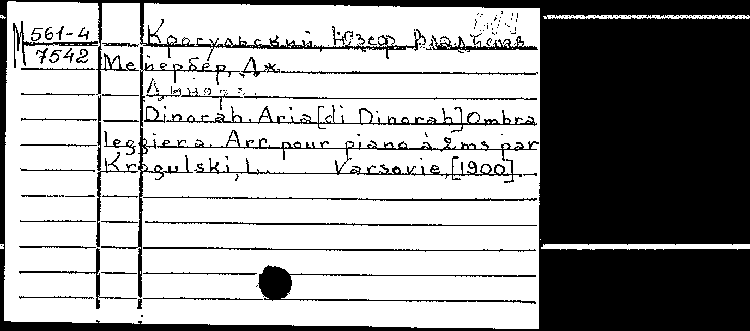 М 561-4
7542
Крогульский, Юзеф Владислав
Мейербер, Дж.
Динора.
Dinorah. Aria [di Dinorah] Ombra
leggiera. Arr. pour piano à 2 ms par
Krogulski, L. Varsovie, [1900].